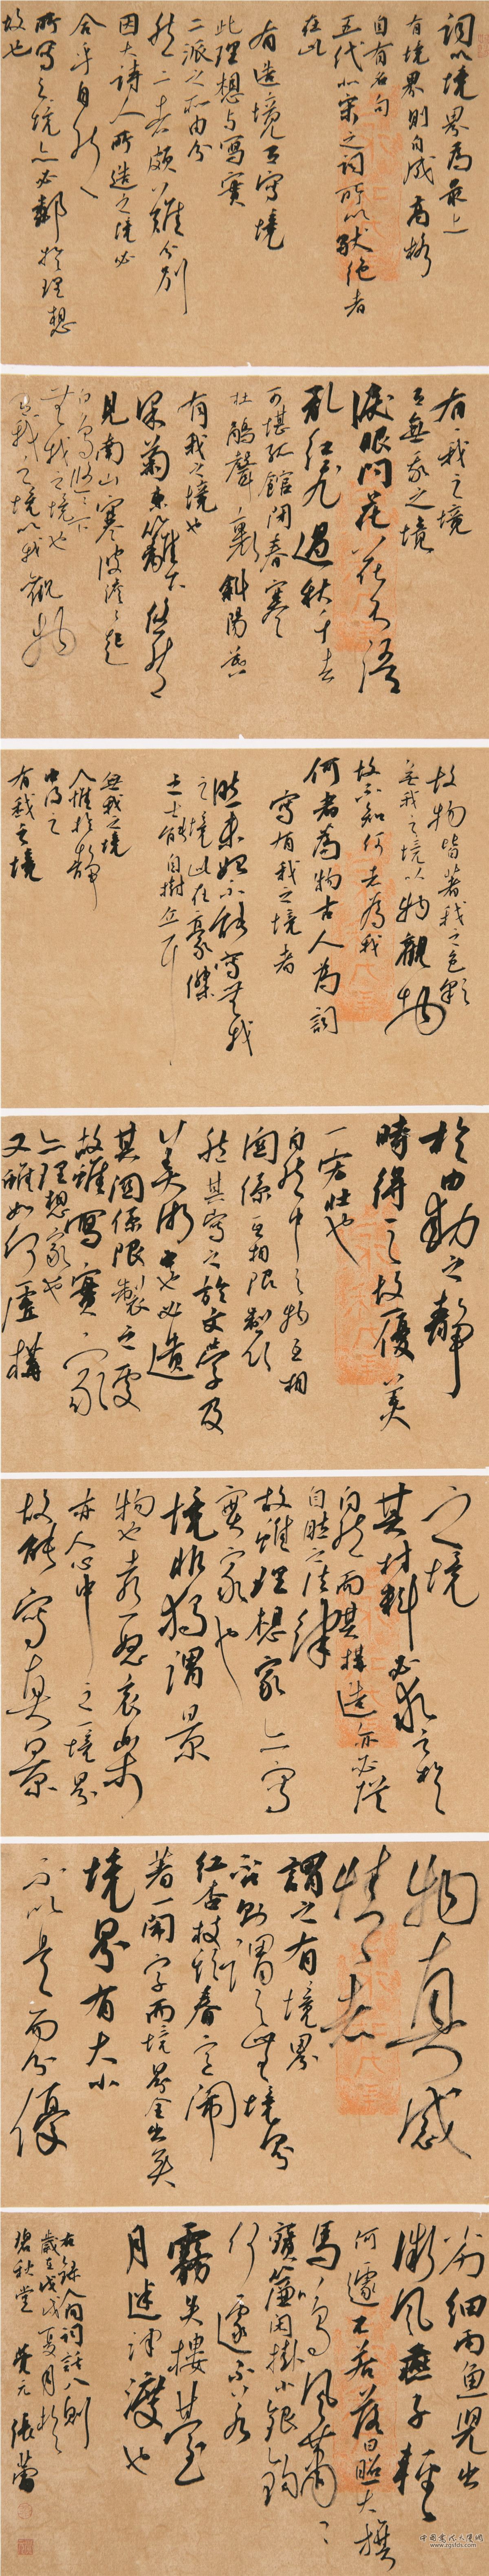 词以境界為最上
有境界則自成高格
自有名句
五代北宋之词所以獨绝者
在此
有造境有写境
此理想与寫實
二派之所由分
然二者颇難分别
因大诗人所造之境必
合乎自然
所写之境亦必鄰於理想
故也
有有我之境
有無我之境
淚眼问花花不语
亂红飛過秋千去
可堪孤館闭春寒
杜鹃聲裏斜陽暮
有我之境也
采菊東籬下悠然
見南山寒波澹澹起
白鳥悠悠下
無我之境也
有我之境以我觀物
故物皆著我之色彩
無我之境以物觀物
故不知何者為我
何者為物古人為詞
寫有我之境者
為多
然未始不能寫無我
之境此在豪傑
之士能自樹立耳
無我之境
人惟於静
中得之
有我之境
於由動之静
時得之故一優美
一宏壮也
自然中之物互相
關係互相限制
然其写之於文學及
美術中也必遺
其關係限製之處
故雖寫實家
亦理想家也
又雖如何虚構
之境
其材料必求之於
自然而其構造亦必從
自然之法律
故雖理想家亦寫
實家也
境非獨謂景
物也喜怒哀樂
亦人心中之一境界
故能寫真景
物真感
情者
謂之有境界
否則謂之無境界
红杏枝頭春意闹
著一闹字而境界全出矣
境界有大小
不以是而分優
劣细雨魚児出
微風燕子斜
何遽不若落日照大旗
馬鸣風萧萧
寶簾闲掛小銀鈎
何遽不若
霧失樓臺
月迷津渡也
右録人间词话八則
歲在戊戌夏月於
碧秋堂 竞元 張蕾
中国书法大厦网
www.zgsfds.com